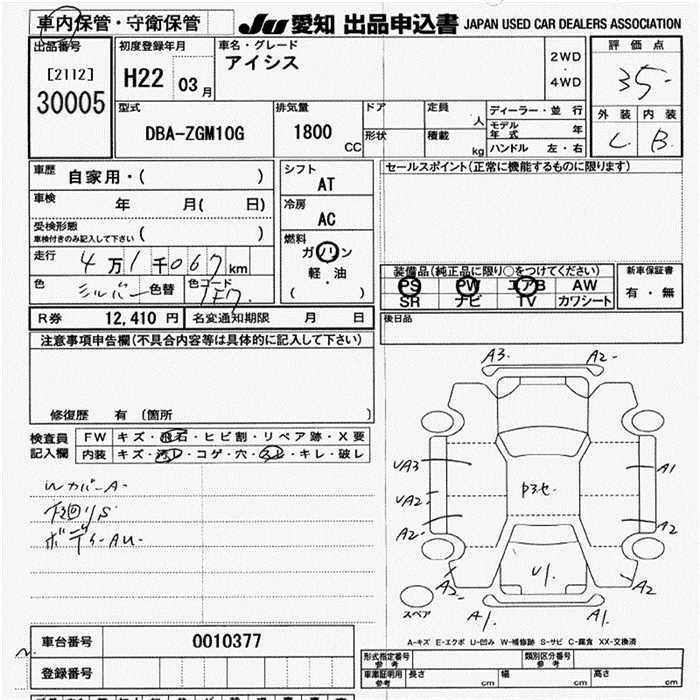 車内保管・守衛保管 JU 愛知 出品申込書 JAPAN USED CAR DEALERS ASSOCIATION
出品番号
[2112]
30005
初度登録年月
H22 03月
車名・グレード
アイシス
2WD
・
4WD
評価点
35-
外装 内装
C B
型式
DBA-ZGM10G
排気量
1800
CC
ドア
形状
定員
人
積載
kg
ディーラー・並行
モデル年式 年
ハンドル 左・右
車歴 自家用・( )
車検 年 月( 日)
受検形態
車検付きのみ記入して下さい ( )
走行 4万1千067km
色 シルバー 色替 色コード 1F7
シフト
AT
冷房
AC
燃料
ガソリン
軽・油
( )
セールスポイント(正常に機能するものに限ります)
装備品(純正品に限り○をつけてください)
PS PW エアB AW
SR ナビ TV カワシート
新車保証書
有・無
R券 12,410円 名変通知期限 月 日
後日品
注意事項申告欄(不具合内容等は具体的に記入して下さい)
修復歴 有 [箇所 ]
検査員
記入欄
FW キズ・飛石・ヒビ割・リペア跡・X要
内装 キズ・汚レ・コゲ・穴・スレ・キレ・破レ
WカバーA-
下回りS
ボディーAU-
A3. A2-
UA3 A1
UA2-
P3セ.
A2- A2
U1.
A2- A2
スペア
A1. A1.
A-キズ E-エクボ U-凹み W-補修跡 S-サビ C-腐食 XX-交換済
車台番号 0010377
登録番号
形式指定番号
参考
類別区分番号
参考
車庫証明用
参考
長さ cm 幅 cm 高さ cm